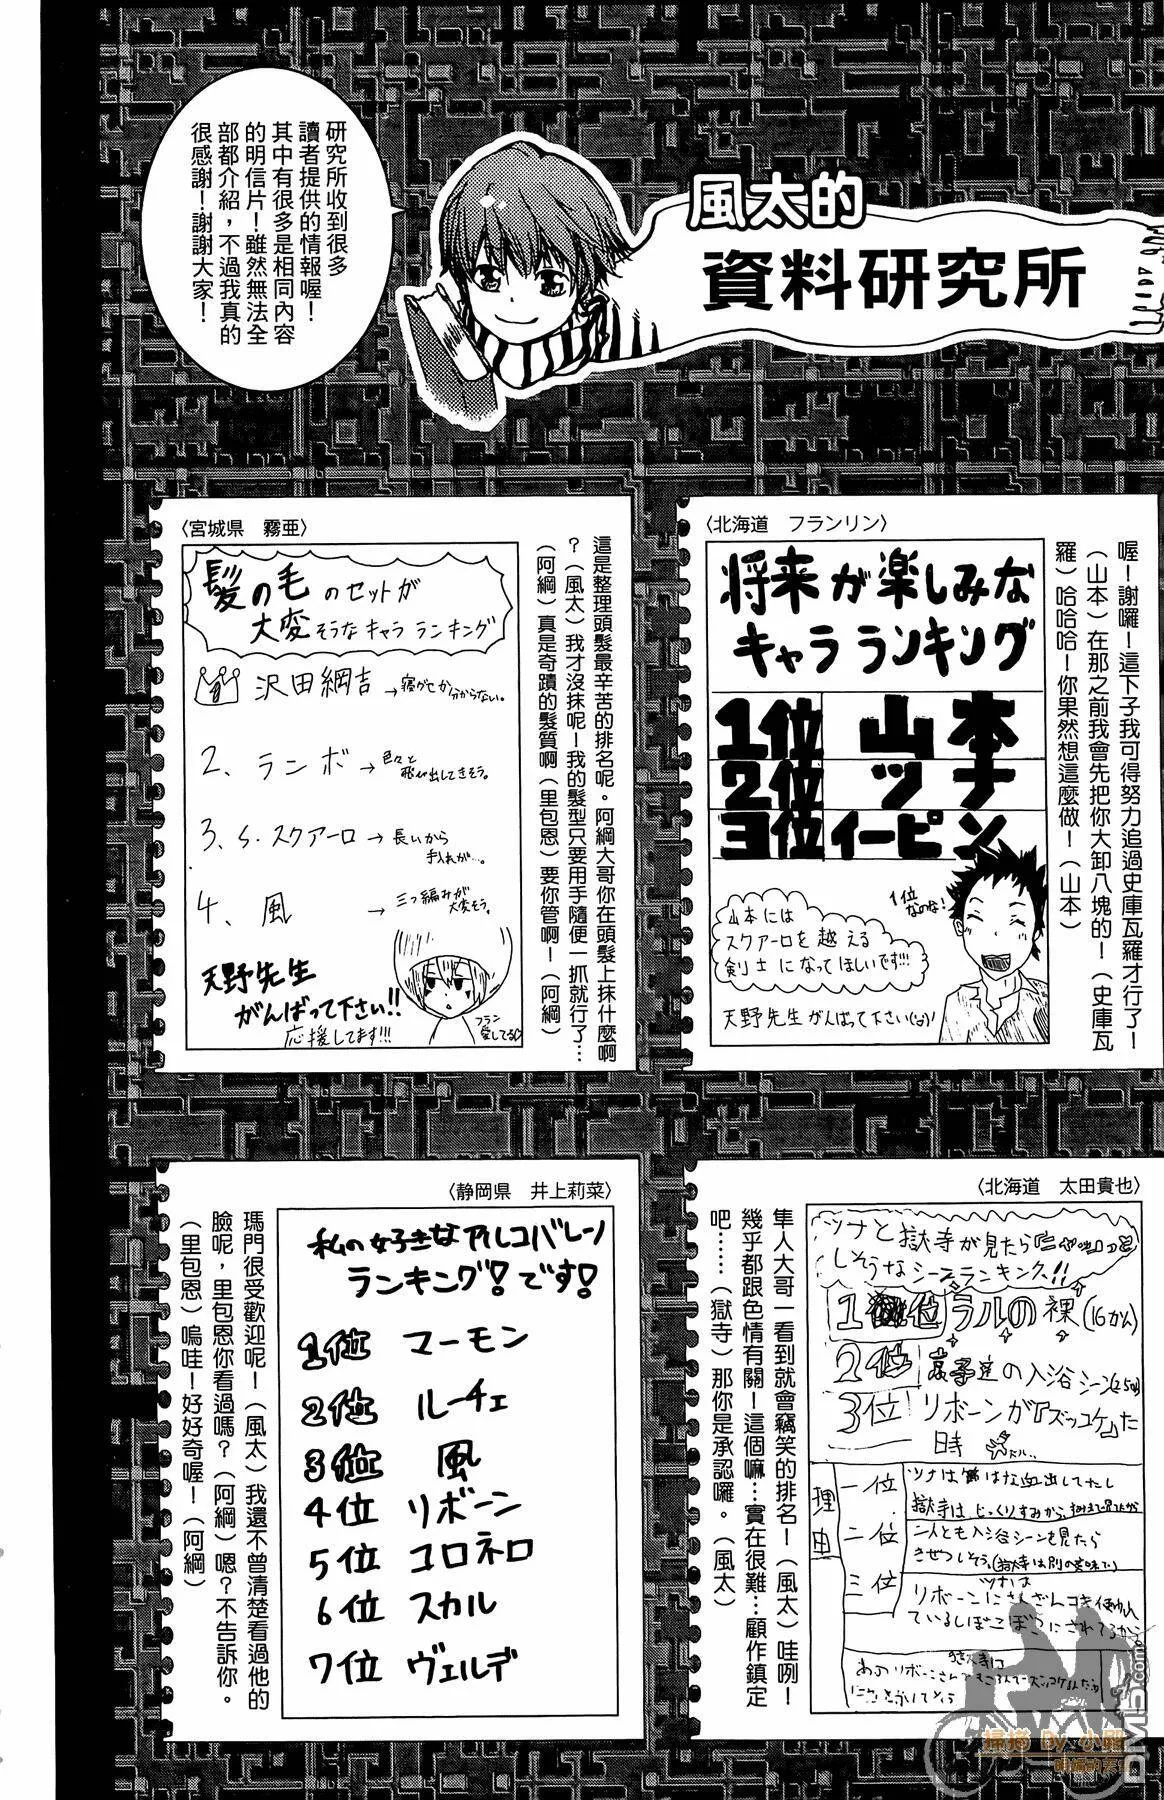 風太的
資料研究所
研究所收到很多
讀者提供的情報喔！
其中有很多是相同內容
的明信片！雖然無法全
部都介紹，不過我真的
很感謝！謝謝大家！
〈北海道　フランリン〉
将来が楽しみな
キャラランキング
1位 山本
2位 ツナ
3位 イーピン
1位なのな！
山本には
スクアーロを越える
剣士になってほしいです!!!
天野先生がんばって下さい
喔！謝囉！這下子我可得努力追過史庫瓦羅才行了！
（山本）在那之前我會先把你大卸八塊的！（史庫瓦
羅）哈哈哈！你果然想這麼做！（山本）
〈宮城県　霧亜〉
髪の毛のセットが
大変そうなキャラランキング
沢田綱吉→寝グセか分からない。
2、ランボ→色々と
飛び出してきそう。
3、S・スクアーロ→長いから
手入れが…。
4、風→三つ編みが
大変そう。
天野先生
がんばって下さい!!
応援してます!!!
フラン
愛してる
這是整理頭髮最辛苦的排名呢。阿綱大哥你在頭髮上抹什麼啊
？（風太）我才沒抹呢！我的髮型只要用手隨便一抓就行了…
（阿綱）真是奇蹟的髮質啊（里包恩）要你管啊！（阿綱）
〈北海道　太田貴也〉
ツナと獄寺が見たら
しそうなシーンランキング!!
1位 ラルの裸(16かん)
2位 京子達の入浴シーン
3位 リボーンが『ズッコケ』た
時
理由
一位
二位
三位
二人とも入浴シーンを見たら
ツナは
隼人大哥一看到就會竊笑的排名！（風太）哇咧！
幾乎都跟色情有關！這個嘛…實在很難…顧作鎮定
吧……（獄寺）那你是承認囉。（風太）
〈静岡県　井上莉菜〉
私の好きなアルコバレーノ
ランキング！です！
1位 マーモン
2位 ルーチェ
3位 風
4位 リボーン
5位 コロネロ
6位 スカル
7位 ヴェルデ
瑪門很受歡迎呢！（風太）我還不曾清楚看過他的
臉呢，里包恩你看過嗎？（阿綱）嗯？不告訴你。
（里包恩）嗚哇！好好奇喔！（阿綱）
掃描 By 小照